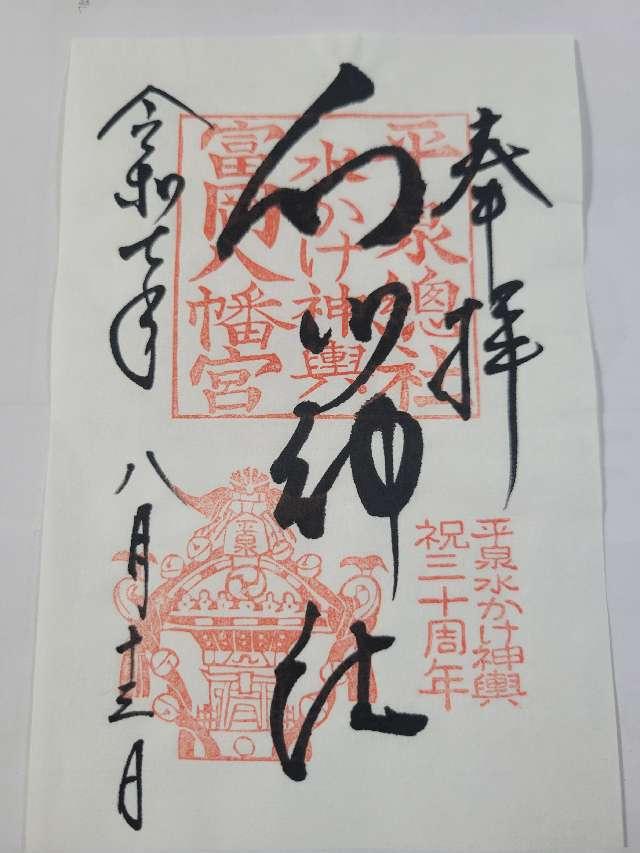 奉拝
平泉總社
水かけ神輿
富岡八幡宮
白山神社
平泉水かけ神輿
祝三十周年
平泉
令和七年 八月十三日